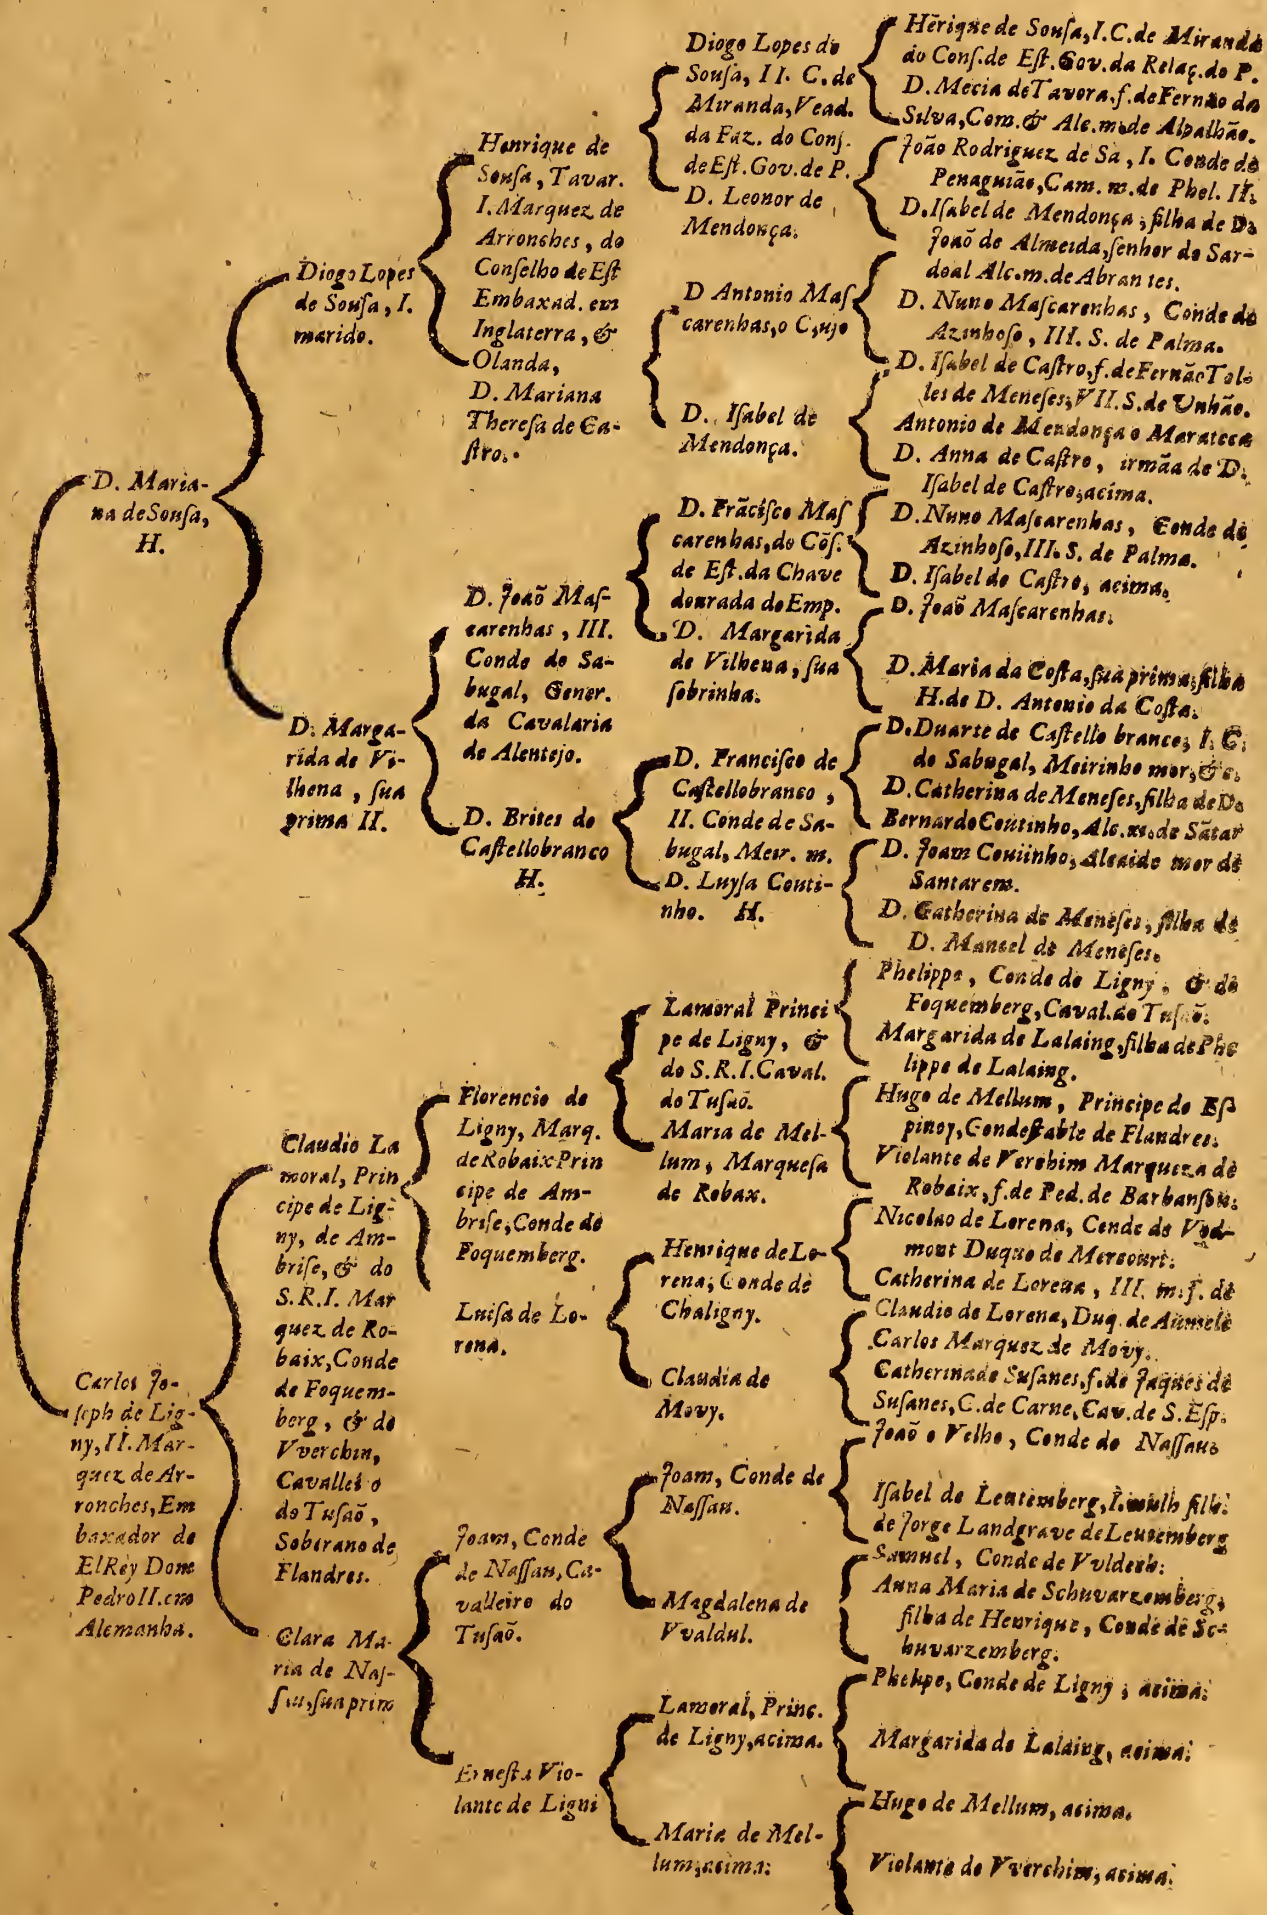 D. Maria-
na de Sousa,
H.
Carlos Jo-
seph de Lig-
ny, II. Mar-
quez de Ar-
ronches, Em
baxador de
ElRey Dom
Pedro II. em
Alemanha.
Diogo Lopes
de Sousa, I.
marido.
D. Marga-
rida de Vi-
lhena, sua
prima II.
Claudio La
moral, Prin
cipe de Lig-
ny, de Am-
brise, & do
S.R.I. Mar
quez de Ro-
baix, Conde
de Foquem-
berg, & de
Vverchin,
Cavallei o
do Tusaõ,
Soberano de
Flandres.
Clara Ma-
ria de Nas-
sau, sua prim
Henrique de
Sousa, Tavar.
I. Marquez de
Arronches, do
Conselho de Est
Embaxad. em
Inglaterra, &
Olanda,
D. Mariana
Theresa de Ca-
stro.
D. Joaõ Mas-
carenhas, III.
Conde do Sa-
bugal, Gener.
da Cavalaria
de Alentejo.
D. Brites de
Castellobranco
H.
Florencio de
Ligny, Marq.
de Robaix Prin
cipe de Am-
brise, Conde de
Foquemberg.
Luisa de Lo-
rena.
Joam, Conde
de Nassau, Ca-
valleiro do
Tusaõ.
Ernesta Vio-
lante de Ligni
Diogo Lopes de
Sousa, II. C. de
Miranda, Vead.
da Faz. do Cons.
de Est. Gov. de P.
D. Leonor de
Mendonça.
D Antonio Mas
carenhas, o C,ujo
D. Isabel de
Mendonça.
D. Frãcisco Mas
carenhas, do Cõs.
de Est. da Chave
dourada do Emp.
D. Margarida
de Vilhena, sua
sobrinha.
D. Francisco de
Castellobranco,
II. Conde de Sa-
bugal, Meir. m.
D. Luysa Couti-
nho. H.
Lamoral Princi
pe de Ligny, &
do S.R.I. Caval.
do Tusaõ.
Maria de Mel-
lum, Marquesa
de Robax.
Henrique de Lo-
rena, Conde de
Chaligny.
Claudia de
Movy.
Joam, Conde de
Nassau.
Magdalena de
Vvaldul.
Lamoral, Princ.
de Ligny, acima.
Maria de Mel-
lum, acima.
Hẽrique de Sousa, I.C. de Miranda
do Cons. de Est. Gov. da Relaç. do P.
D. Mecia de Tavora, f. de Fernão da
Silva, Com. & Alc. m. de Alpalhão.
João Rodriguez de Sa, I. Conde de
Penaguião, Cam. m. de Phel. II.
D. Isabel de Mendonça, filha de D.
Joaõ de Almeida, senhor do Sar-
doal Alc. m. de Abrantes.
D. Nuno Mascarenhas, Conde de
Azinhoso, III. S. de Palma.
D. Isabel de Castro, f. de Fernão Tel-
les de Meneses, VII. S. de Unhão.
Antonio de Mendonça o Marateca
D. Anna de Castro, irmãa de D.
Isabel de Castro, acima.
D. Nuno Mascarenhas, Conde de
Azinhoso, III. S. de Palma.
D. Isabel de Castro, acima.
D. Joaõ Mascarenhas.
D. Maria da Costa, sua prima, filha
H. de D. Antonio da Costa.
D. Duarte de Castello branco, I. C.
do Sabugal, Meirinho mor, &c.
D. Catherina de Meneses, filha de D.
Bernardo Coutinho, Alc. m. de Sãtar
D. Joam Coutinho, Alcaide mor de
Santarem.
D. Catherina de Meneses, filha de
D. Manoel de Meneses.
Phelippe, Conde de Ligny, & de
Foquemberg, Caval. do Tusaõ.
Margarida de Lalaing, filha de Phe
lippe de Lalaing.
Hugo de Mellum, Principe de Es-
pinoy, Condestable de Flandres.
Violante de Verchim Marqueza de
Robaix, f. de Ped. de Barbanson.
Nicolao de Lorena, Conde de Vod-
mont Duque de Mercourt.
Catherina de Lorena, III. m. f. de
Claudio de Lorena, Duq. de Aumele
Carlos Marquez de Movy.
Catherina de Susanes, f. de Jaques de
Susanes, C. de Carne, Cav. de S. Esp.
Joaõ o Velho, Conde de Nassau.
Isabel de Leutemberg, I. mulh filh.
de Jorge Landgrave de Leutemberg
Samuel, Conde de Vvldech.
Anna Maria de Schuvarzemberg,
filha de Henrique, Conde de Sc-
huvarzemberg.
Phelipe, Conde de Ligny, acima.
Margarida de Lalaing, acima.
Hugo de Mellum, acima.
Violante de Vverchim, acima.